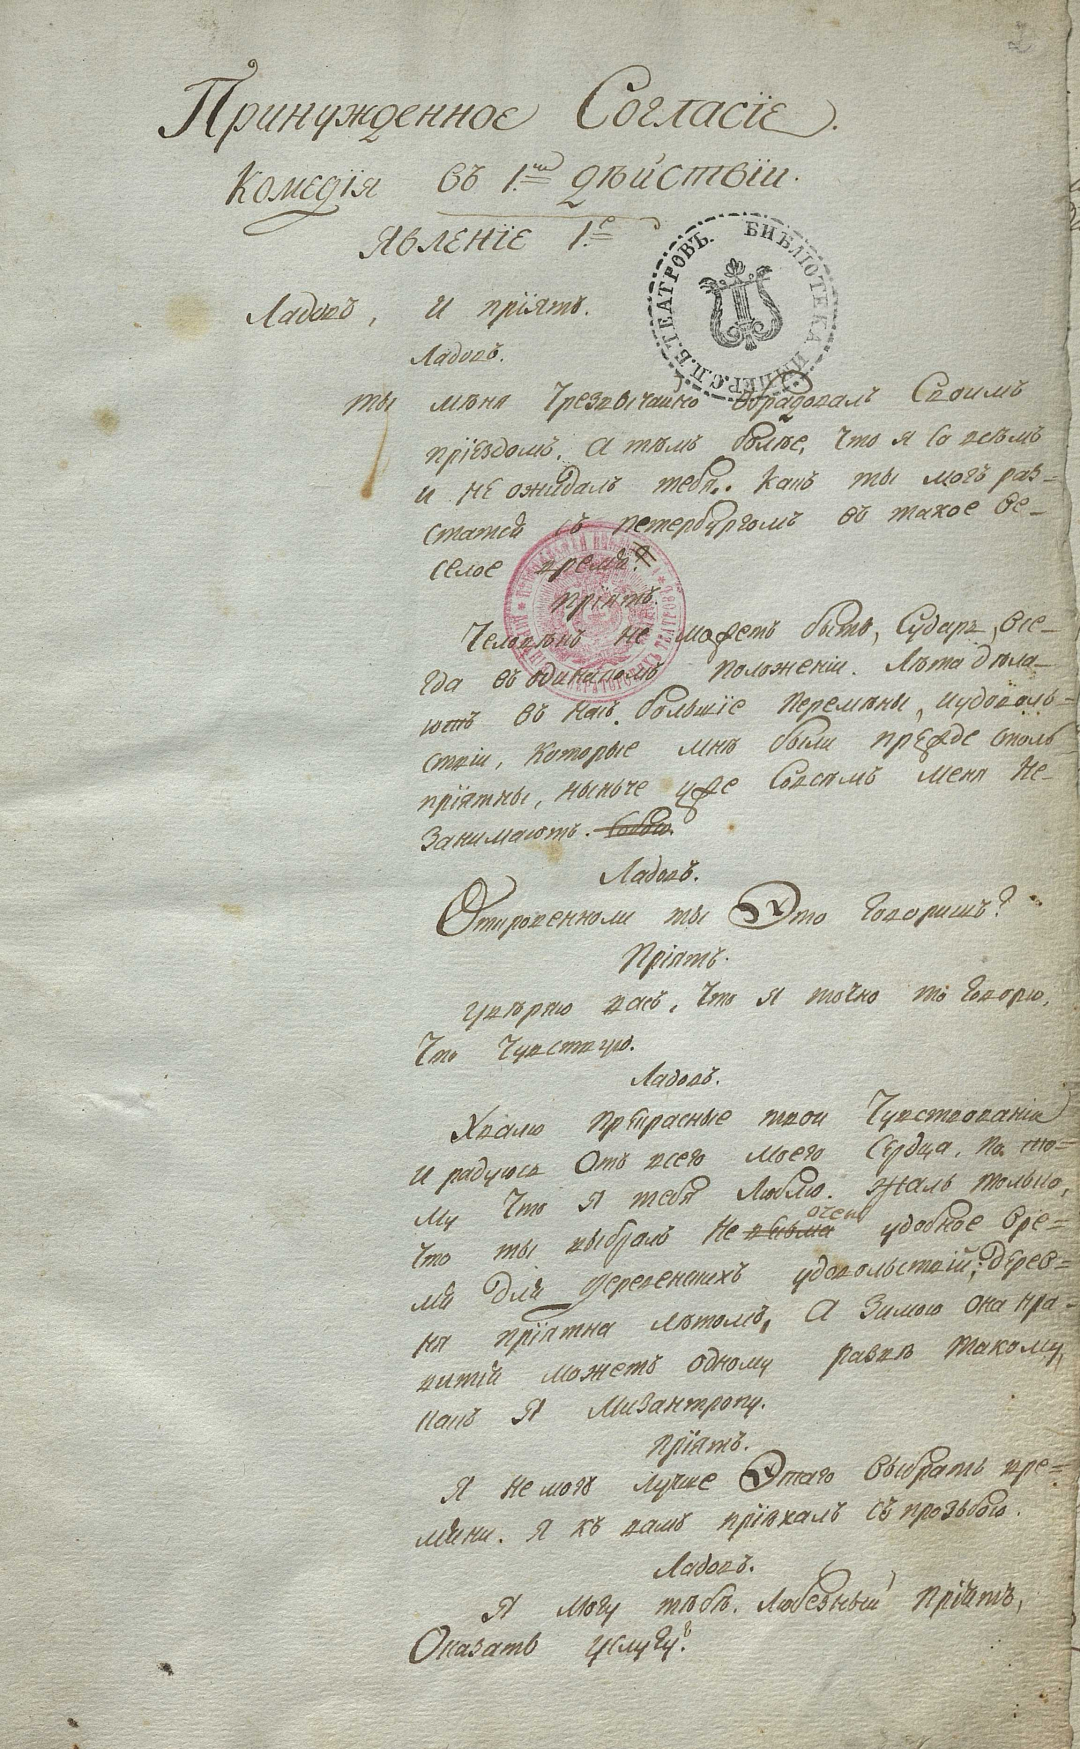 2
Принужденное Согласїе.
Комедїя въ 1.мъ дѣйствїи.
Явленїе 1.е
БИБЛІОТЕКА ИМПЕР. С.П.Б. ТЕАТРОВЪ.
Ладовъ, и прїятъ.
Ладовъ.
ты мѣня Чрезвычайно обрадовалъ Своимъ
прїездомъ, А тѣмъ болѣе, Что я Со всѣмъ
и не ожидалъ тебя. Какъ ты могъ раз=
статся съ петербургомъ въ такое ве-
селое время?
прїятъ.
Человѣкъ не можетъ быть, Сударь, все-
гда въ одинакомъ положеніи. Лѣта дѣла-
ютъ въ насъ большїе перемѣны, иудоволь=
ствіи, которые мнѣ были прежде столь
прїятны, ныньче уже Совсѣмъ меня не-
занимаютъ. Собою.
Ладовъ.
Откровенноли ты Это Говоришъ?
Прїятъ.
увѣряю васъ, Что я точно то Говорю,
Что Чувствую.
Ладовъ.
Хвалю прекрасные твои Чувствованіи
и радуюсь Отъ всего моего Сердца, по то=
му Что я тебя Люблю. Жаль только,
очень
Что ты выбралъ не весьма удобное вре=
мя для деревенскихъ удовольствій; Дерев=
ня прїятна лѣтомъ, А Зимою она нра-
витця можетъ одному развѣ такому,
какъ Я Мизантропу.
прїятъ.
Я не могъ лучше Этаго выбрать вре=
мяни. Я къ вамъ прїехалъ съ прозьбою.
Ладовъ.
Я могу тѣбѣ, Любезный Прїятъ,
Оказать услугу?